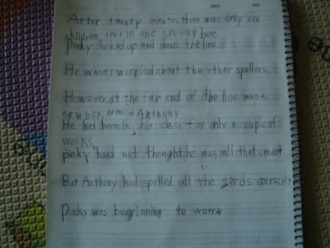 After twenty minutes there was only six
children left in the spelling bee.
Pinky looked up and down the line.
He wasnt worried about the other spellers.
However at the far end of the line was a
new boy, Anthony
He had been in his class for only a couple of
weeks
pinky had not thought he was all that smart
But Anthony had spelled all the words correctly
Pinky was beginning to worry